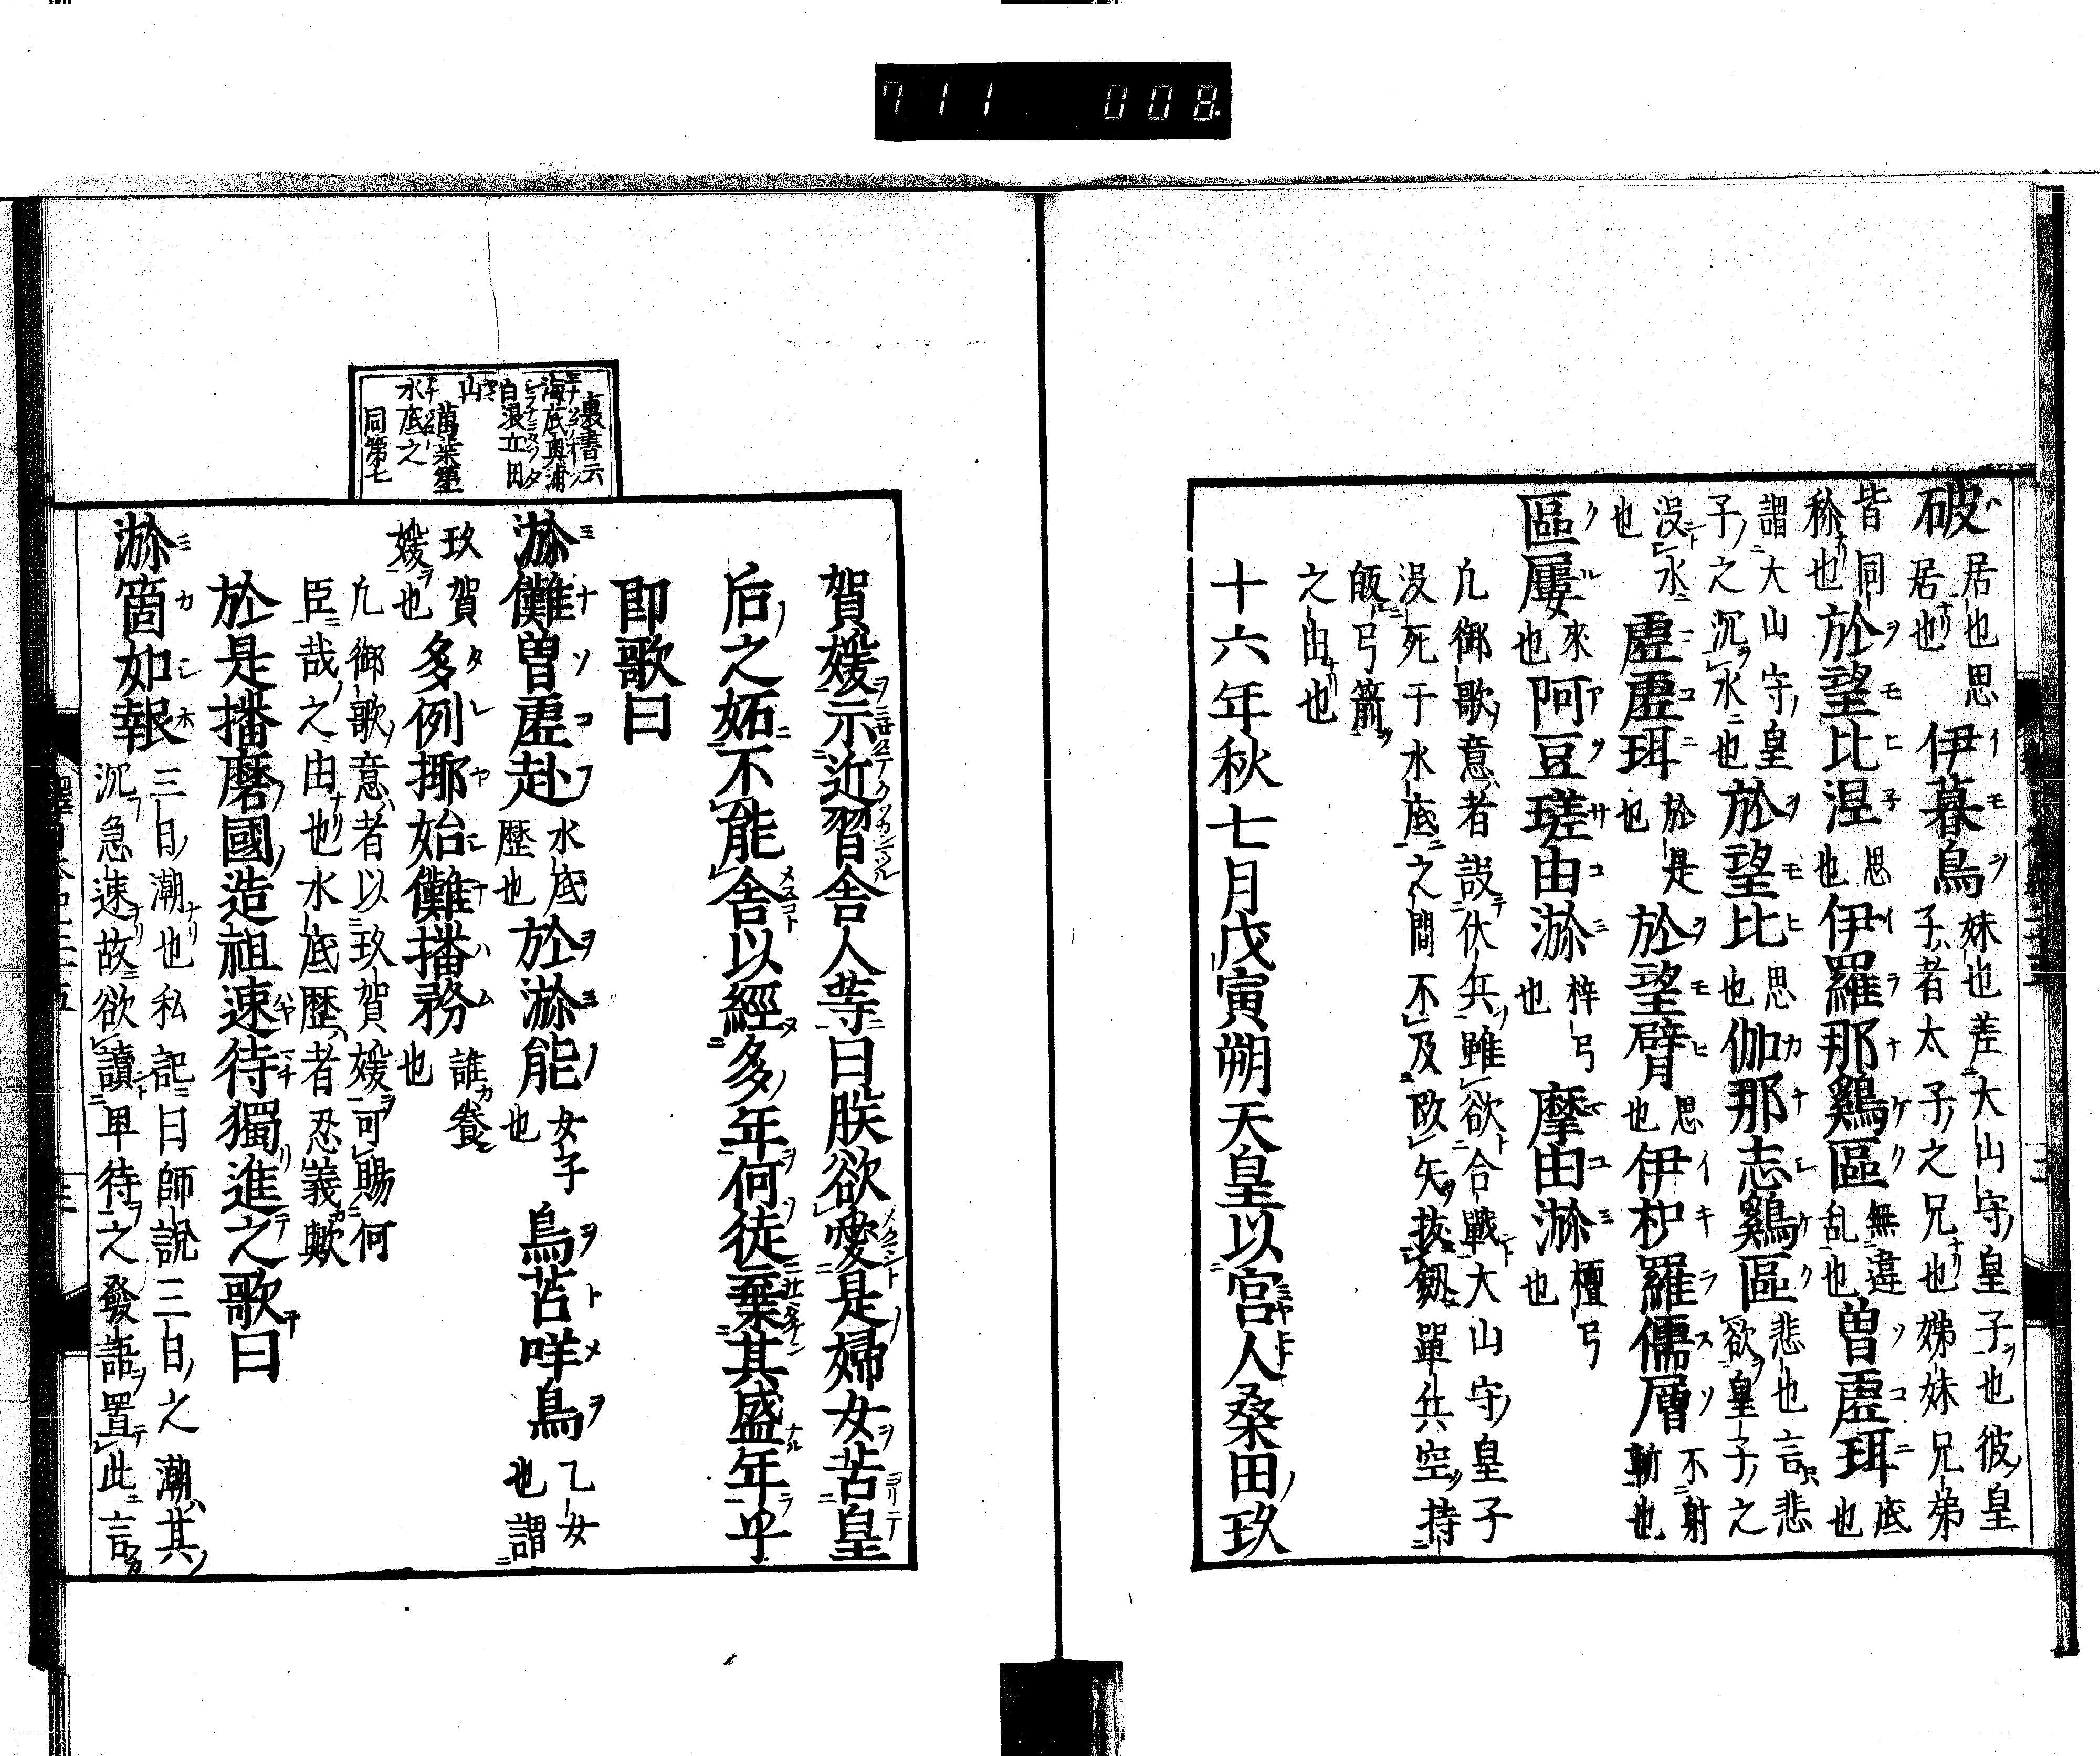 711 008
破 居也思居也 伊暮烏 妹也差大山守皇子也彼皇子者太子之兄也姊妹兄弟
皆同称也 於望比涅 思也 伊羅那鷄區 無違乱也 曽虛珥 底也
謂大山守皇子之沉水也 於望比 思也 伽那志鷄區 悲也言悲欲皇子之
没水也 虛虛珥 於是也 於望臂 思也 伊枦羅儒層 不射斬也
區屢 來也 阿豆瑳由瀰 梓弓也 摩由瀰 檀弓也
凢御歌意者設伏兵雖欲合戰大山守皇子
没死于水底之間不及放矢抜劔單兵空持
皈弓箭
之由也
十六年秋七月戊寅朔天皇以宮人桑田玖
賀媛示近習舎人等曰朕欲愛是婦女苦皇
后之妬不能舎以經多年何徒棄其盛年乎
即歌曰
瀰儺曽虛赴 水底歷也 於瀰能 女子也 烏苫咩烏 乙女也謂
玖賀媛也 多例揶始儺播務 誰養也
凢御歌意者以玖賀媛可賜何
臣哉之由也水底歷者忍義歟
於是播磨國造祖速待獨進之歌曰
瀰箇如報 三日潮也私記曰師說三日之潮其沉急速故欲讀早待之發語置此言
裏書云
海底奥浦
白浪立田
山
萬葉第一
水底之
同第七